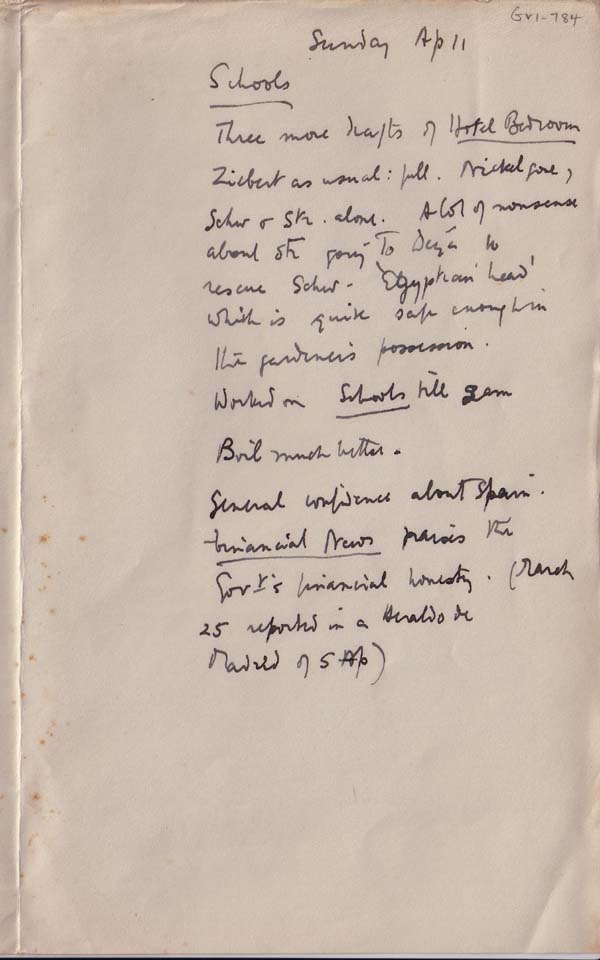 GV1-784
Sunday Ap 11
Schools
Three more drafts of Hotel Bedroom
Ziebert as usual: full. Nickel gone,
Schw & Str. alone. A lot of nonsense
about Str going To Deyá to
rescue Schw- 'Egyptian head'
which is quite safe enough in
the gardener's possession.
Worked on Schools till 3am
Boil much better.
General confidence about Spain.
Financial News praises the
Govt's financial honesty. (March
25 reported in a Heraldo de
Madrid of 5 Ap)